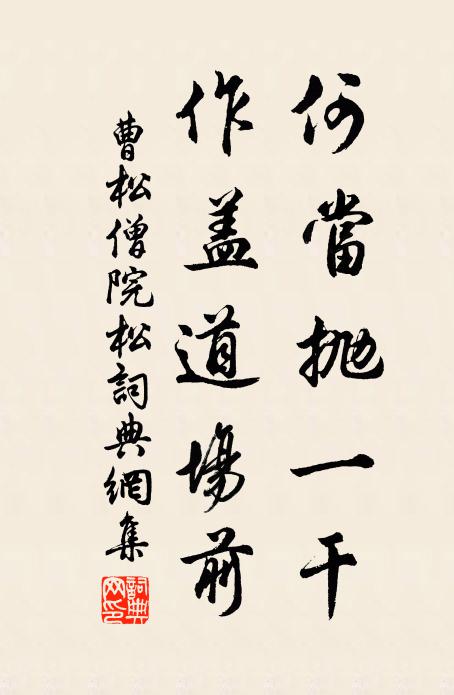 何當抛一干
作盖道場前
曹松僧院松詞典網集
詞典网印